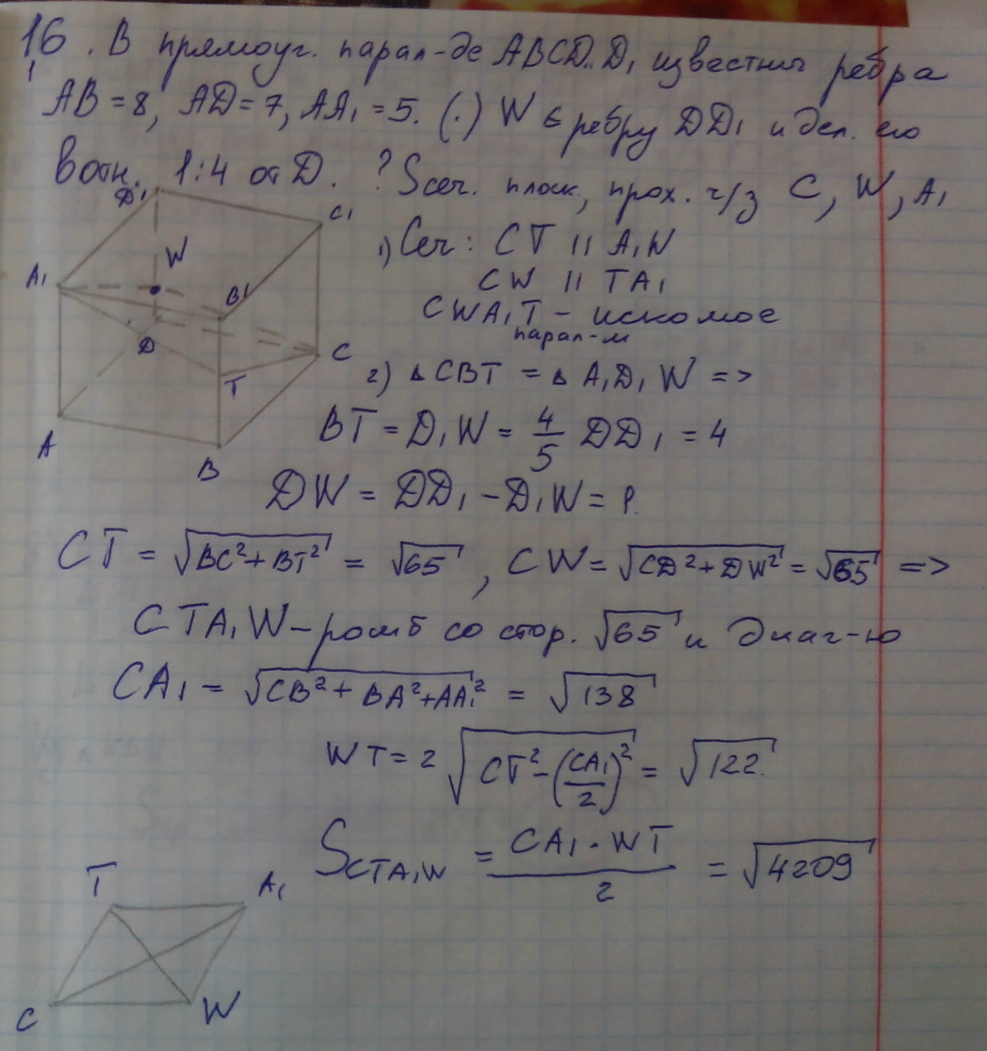 16. В прямоуг. парал-де ABCD..D₁ известны рёбра
AB = 8, AD = 7, AA₁ = 5. (·) W ∈ ребру DD₁ и дел. его
в отн. 1:4 от D. ? Sсеч. плоск., прох. ч/з C, W, A₁
1) Сеч: CT || A₁W
CW || TA₁
CWA₁T - искомое
парал-м
2) ΔCBT = ΔA₁D₁W =>
BT = D₁W = 4/5 DD₁ = 4
DW = DD₁ - D₁W = 1.
CT = √(BC² + BT²) = √65, CW = √(CD² + DW²) = √65 =>
CTA₁W - ромб со стор. √65 и диаг-ю
CA₁ = √(CB² + BA² + AA₁²) = √138
WT = 2√(CT² - (CA₁/2)²) = √122.
S CTA₁W = CA₁ · WT / 2 = √4209
D₁
C₁
W
A₁
B₁
D
C
T
A
B
T
A₁
C
W